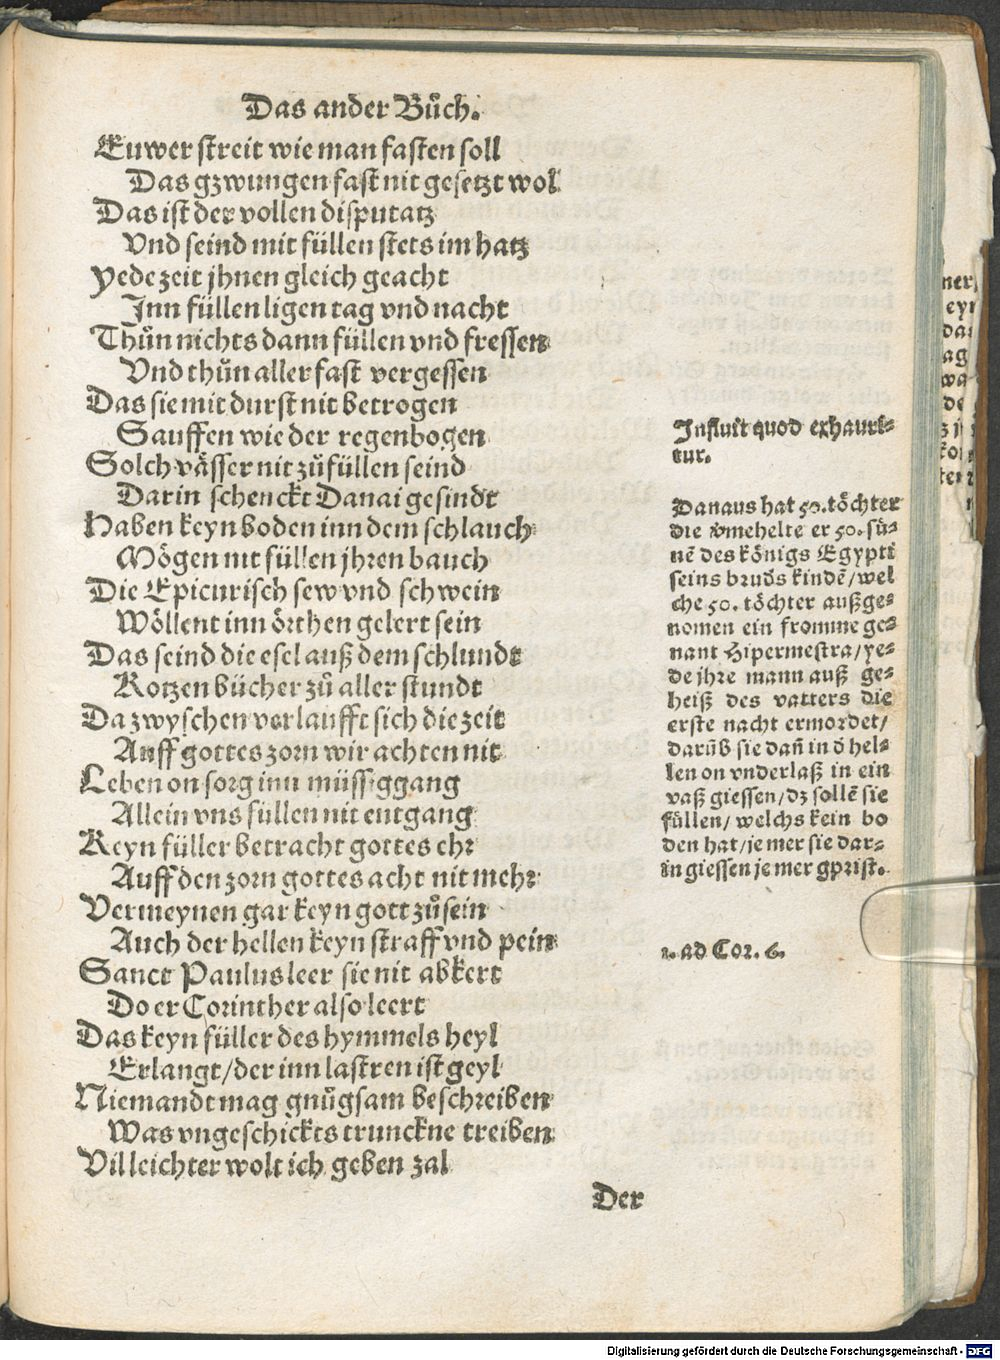 Das ander Bůch.
Euwer streit wie man fasten soll
Das gzwungen fast nit gesetzt wol
Das ist der vollen disputatz
Vnd seind mit füllen stets im hatz
Yede zeit jhnen gleich geacht
Jnn füllen ligen tag vnd nacht
Thůn nichts dann füllen vnd fressen
Vnd thůn aller fast vergessen
Das sie mit durst nit betrogen
Sauffen wie der regenbogen
Solch vässer nit zůfüllen seind
Darin schenckt Danai gesindt
Haben keyn boden inn dem schlauch
Mögen nit füllen jhren bauch
Die Epicurisch sew vnd schwein
Wöllent inn örthen gelert sein
Das seind die esel auß dem schlundt
Kotzen bücher zů aller stundt
Da zwyschen verlaufft sich die zeit
Auff gottes zorn wir achten nit
Leben on sorg inn müssiggang
Allein vns füllen nit entgang
Keyn füller betracht gottes ehr
Auff den zorn gottes acht nit mehr
Vermeynen gar keyn gott zůsein
Auch der hellen keyn straff vnd pein
Sanct Paulus leer sie nit abkert
Do er Corinther also leert
Das keyn füller des hymmels heyl
Erlangt/der inn lastren ist geyl
Niemandt mag gnůgsam beschreiben
Was vngeschickts trunckne treiben
Vil leichter wolt ich geben zal
Der
Influit quod exhauri-
tur.
Danaus hat 50. töchter
die vmehelte er 50. sü-
nẽ des königs Egypti
seins brud's kindẽ/wel
che 50. töchter außge-
nomen ein fromme ge-
nant Hipermestra/ye-
de jhre mann auß ge-
heiß des vatters die
erste nacht ermordet/
darũß sie dañ in d' hel-
len on vnderlaß in ein
vaß giessen/dz sollẽ sie
füllen/welchs kein bo
den hat/je mer sie dar-
in giessen je mer gprist.
1. ad Cor. 6.
Digitalisierung gefördert durch die Deutsche Forschungsgemeinschaft - DFG